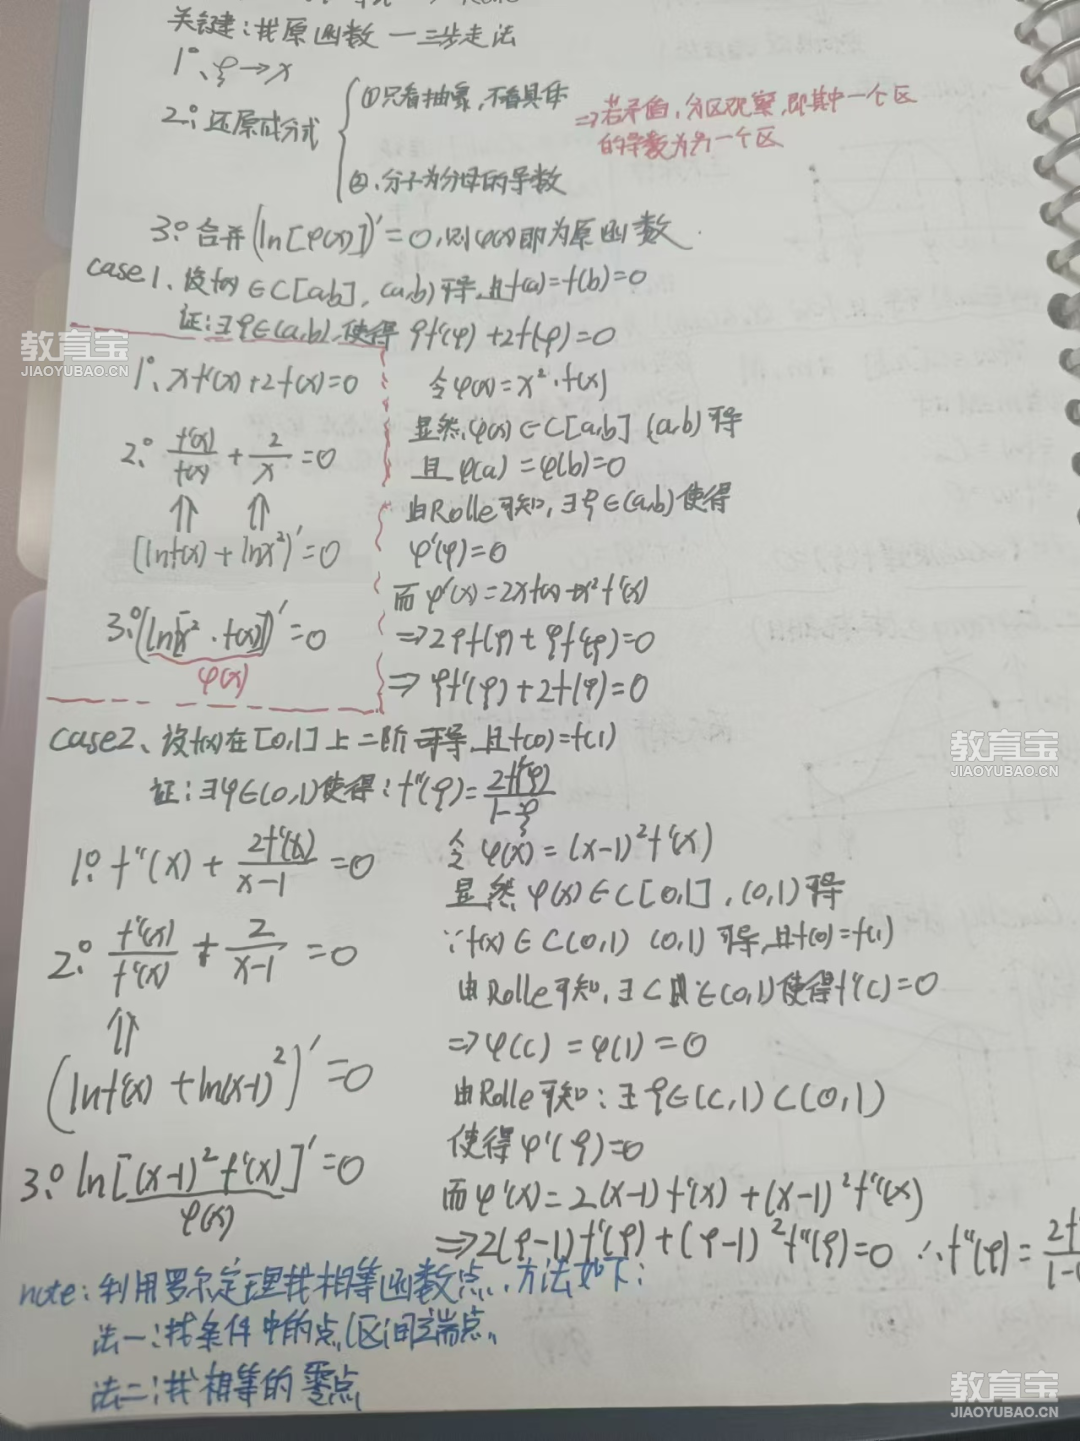 关键:找原函数一三步走法
1°、ξ→x
2°、还原成分式
①只看抽象,不看具体
②、分子为分母的导数
⇒若矛盾,分区观察,即其中一个区
的导数为另一个区
3°、合并(ln[φ(x)])'=0,则φ(x)即为原函数.
case1、设f(x)∈C[a,b],(a,b)可导,且f(a)=f(b)=0
证:∃ξ∈(a,b),使得 ξf'(ξ)+2f(ξ)=0
1°、xf'(x)+2f(x)=0
2°、f'(x)/f(x) + 2/x =0
(lnf(x)+lnx²)'=0
3°、(ln[x²·f(x)])'=0
φ(x)
令φ(x)=x²·f(x)
显然,φ(x)∈C[a,b] (a,b)可导
且φ(a)=φ(b)=0
由Rolle可知,∃ξ∈(a,b)使得
φ'(ξ)=0
而φ'(x)=2xf(x)+x²f'(x)
⇒2ξf(ξ)+ξf'(ξ)=0
⇒ξf'(ξ)+2f(ξ)=0
case2、设f(x)在[0,1]上二阶可导,且f(0)=f(1)
证:∃ξ∈(0,1)使得:f''(ξ)=2f'(ξ)/1-ξ
1°、f''(x)+2f'(x)/x-1=0
2°、f''(x)/f'(x)+2/x-1=0
(lnf'(x)+ln(x-1)²)'=0
3°、ln[(x-1)²f'(x)]'=0
φ(x)
令φ(x)=(x-1)²f'(x)
显然φ(x)∈C[0,1],(0,1)可导
∵f(x)∈C(0,1) (0,1)可导,且f(0)=f(1)
由Rolle可知,∃c∈(0,1)使得f'(c)=0
⇒φ(c)=φ(1)=0
由Rolle可知:∃ξ∈(c,1)⊂(0,1)
使得φ'(ξ)=0
而φ'(x)=2(x-1)f'(x)+(x-1)²f''(x)
⇒2(ξ-1)f'(ξ)+(ξ-1)²f''(ξ)=0 ∴f''(ξ)=
note:利用罗尔定理找相等函数点,方法如下:
法一:找条件中的点,(区间端点,
法二:找相等的零点
教育宝
JIAOYUBAO.CN
教育宝
JIAOYUBAO.CN
教育宝
JIAOYUBAO.CN